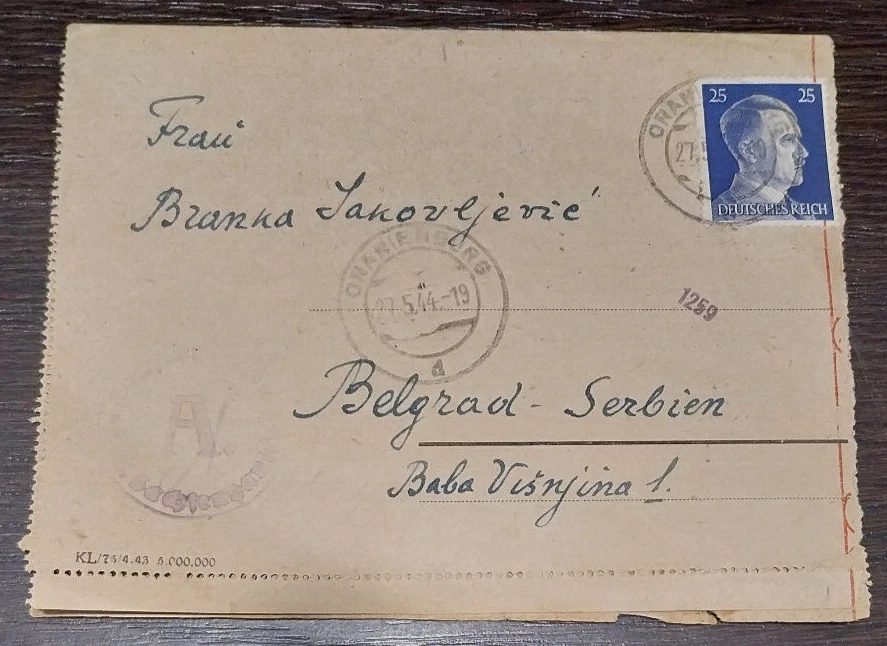 25 25
DEUTSCHES REICH
27.5
Frau
Branka Jakovljević
ORANIENBURG
27.5.44.-19
d
1259
Belgrad - Serbien
Baba Višnjina 1.
KL/75/4.43 5.000.000